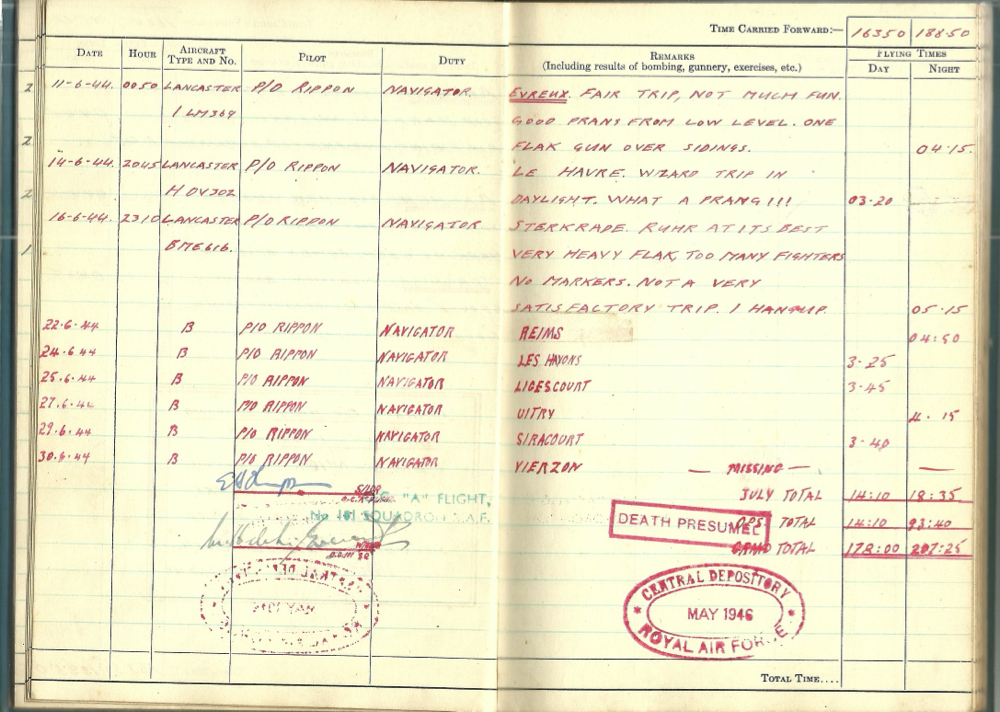 TIME CARRIED FORWARD:— 163·50 188·50
DATE HOUR AIRCRAFT TYPE AND NO. PILOT DUTY REMARKS (Including results of bombing, gunnery, exercises, etc.) FLYING TIMES DAY NIGHT
2 11-6-44. 0050 LANCASTER P/O RIPPON NAVIGATOR. EVREUX. FAIR TRIP, NOT MUCH FUN.
I LM369 GOOD PRANG FROM LOW LEVEL. ONE
2 FLAK GUN OVER SIDINGS. 04·15
14-6-44. 2045 LANCASTER P/O RIPPON NAVIGATOR. LE HAVRE. WIZARD TRIP IN
2 H DV302 DAYLIGHT. WHAT A PRANG!!! 03·20
16-6-44. 2310 LANCASTER P/O RIPPON NAVIGATOR STERKRADE. RUHR AT ITS BEST
1 B ME616. VERY HEAVY FLAK, TOO MANY FIGHTERS
NO MARKERS. NOT A VERY
SATISFACTORY TRIP. 1 HANGUP. 05·15
22·6·44 B P/O RIPPON NAVIGATOR REIMS 04:50
24·6·44 B P/O RIPPON NAVIGATOR LES HAYONS 3·25
25·6·44 B P/O RIPPON NAVIGATOR LIGESCOURT 3·45
27·6·44 B P/O RIPPON NAVIGATOR VITRY 4·15
29·6·44 B P/O RIPPON NAVIGATOR SIRACOURT 3·40
30·6·44 B P/O RIPPON NAVIGATOR VIERZON — MISSING — —
S/LDR JULY TOTAL 14:10 18:35
"A" FLIGHT,
No 101 SQUADRON R.A.F. OPS. TOTAL 14:10 93:40
DEATH PRESUMED
GRAND TOTAL 178:00 207:25
CENTRAL DEPOSITORY
MAY 1946
ROYAL AIR FORCE
TOTAL TIME....